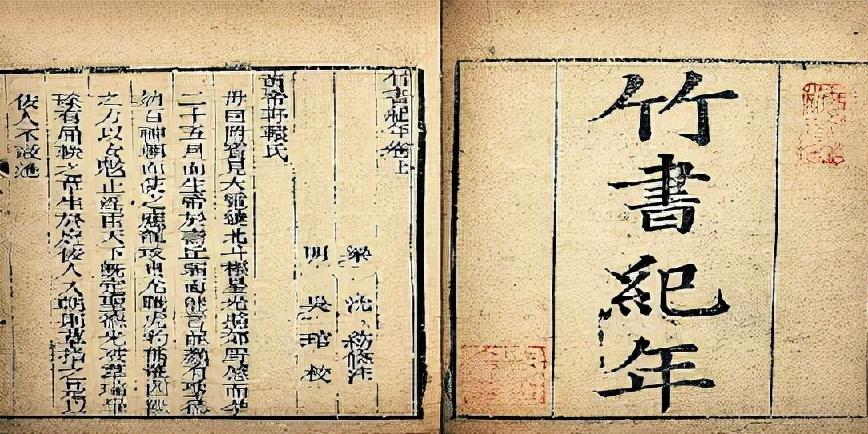 竹書紀年
竹書紀年卷上
梁 沈約 注
明 吳琯 校
軒轅氏
母曰附寶見大電繞北斗樞星光照郊野感而孕
二十五月而生帝於壽丘弱而能言有聖德
百神朝而使之應龍攻蚩尤戰虎豹熊羆四
之力以女魃止淫雨天下既定聖德光被群瑞畢
臻有屈軼之草生於庭佞人入朝則草指之是以
佞人不敢進